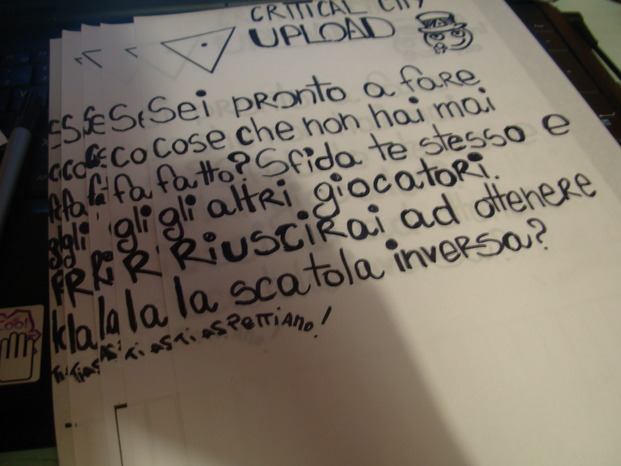 CRITICAL CITY
UPLOAD
Sei pronto a fare
cose che non hai mai
fatto? Sfida te stesso e
gli altri giocatori.
Riuscirai ad ottenere
la scatola inversa?
Ti aspettiamo!
COOL